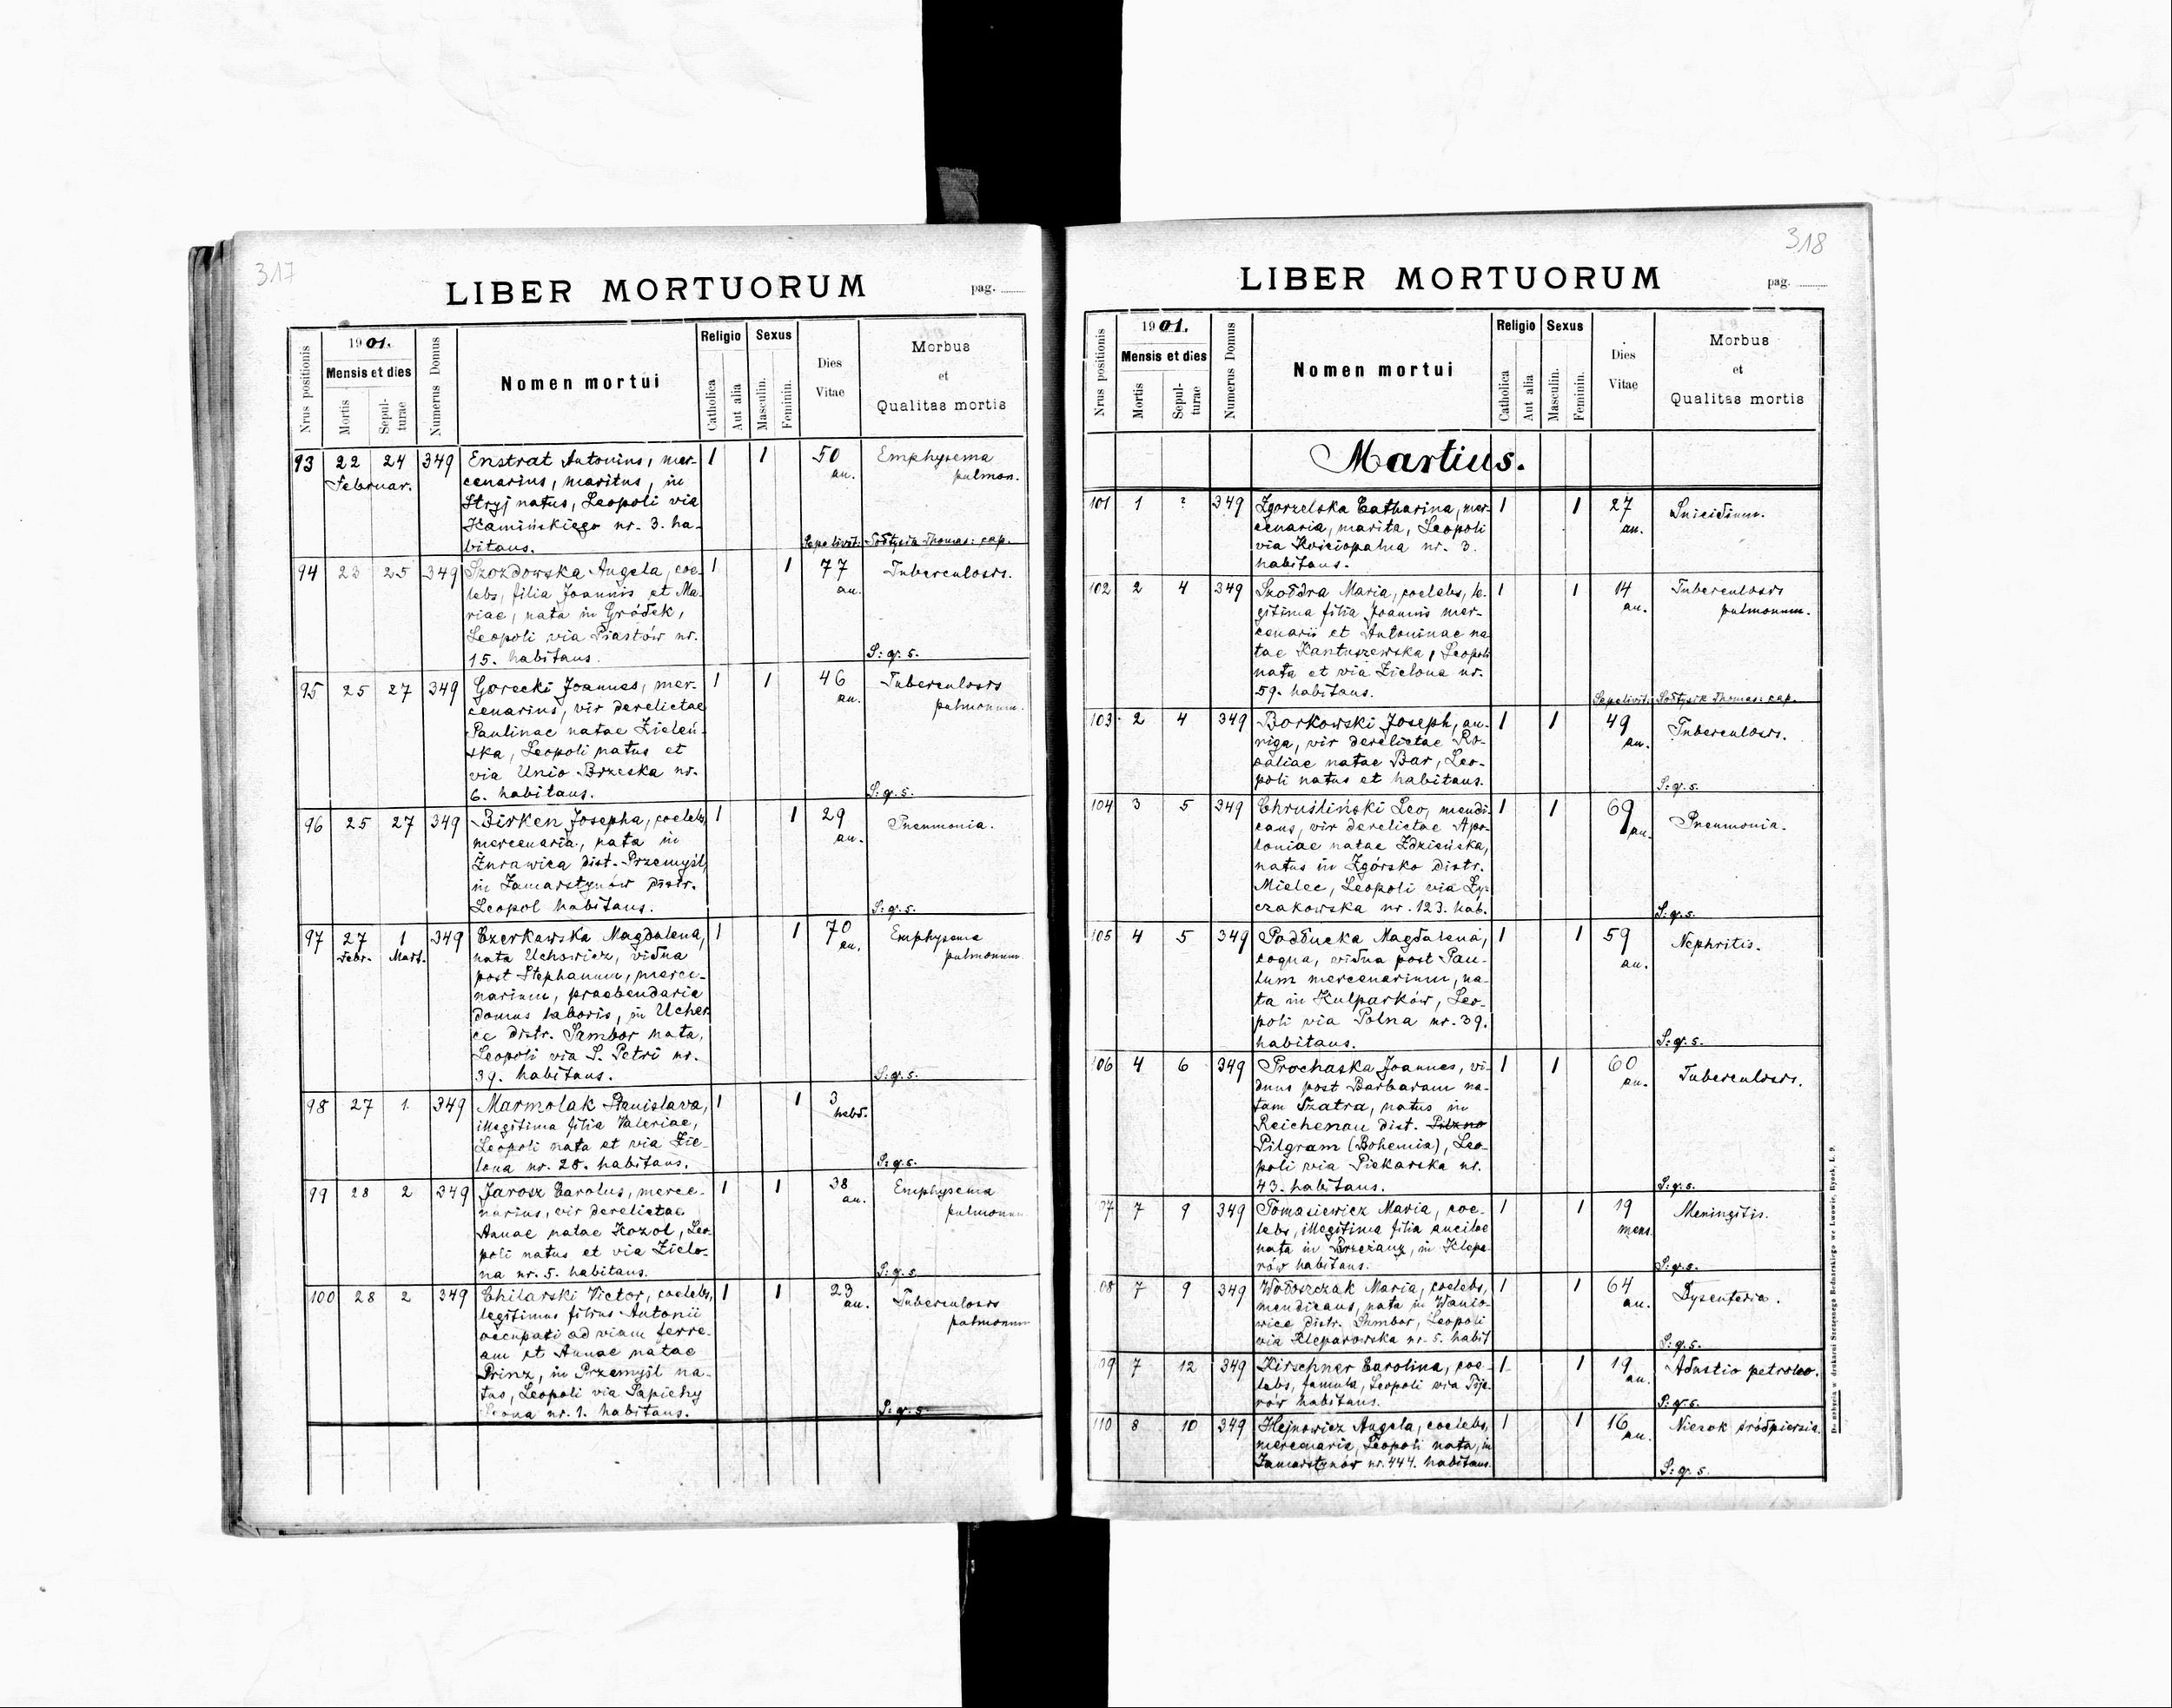 317
LIBER MORTUORUM
pag.
Nrus positionis
1901.
Mensis et dies
Mortis
Sepul-
turae
Numerus Domus
Nomen mortui
Religio
Catholica
Aut alia
Sexus
Masculin.
Feminin.
Dies
Vitae
Morbus
et
Qualitas mortis
93 22 24 349 Enstrat Antonius, mer- 1 1 50 Emphysema
Februar. cenarius, maritus, in an. pulmon.
Stryj natus, Leopoli via
Kamińskiego nr. 3. ha-
bitans. Sepelivit: Sołtysik Thomas: cap.
94 23 25 349 Szozdowska Angela, coe- 1 1 77 Tuberculosis.
lebs, filia Joannis et Ma- an.
riae, nata in Gródek,
Leopoli via Piastów nr.
15. habitans. S: q. s.
95 25 27 349 Gorecki Joannes, mer- 1 1 46 Tuberculosis
cenarius, vir derelictae an. pulmonum.
Paulinae natae Zieleń-
ska, Leopoli natus et
via Unio Brzeska nr.
6. habitans. S: q. s.
96 25 27 349 Birken Josepha, coelebs, 1 1 29 Pneumonia.
mercenaria, nata in an.
Żurawica dist. Przemyśl,
in Zamarstynów distr.
Leopol habitans. S: q. s.
97 27 1 349 Czerkawska Magdalena, 1 1 70 Emphysema
Febr. Mart. nata Uchowicz, vidua an. pulmonum.
post Stephanum, merce-
narium, praebendaria
domus laboris, in Ucher
ce distr. Sambor nata,
Leopoli via S. Petri nr.
39. habitans. S: q. s.
98 27 1. 349 Marmolak Stanislava, 1 1 3
illegitima filia Valeriae, hebd.
Leopoli nata et via Zie-
lona nr. 28. habitans. S: q. s.
99 28 2 349 Jarosz Carolus, merce- 1 1 38 Emphysema
narius, vir derelictae an. pulmonum
Annae natae Kozol, Leo-
poli natus et via Zielo-
na nr. 5. habitans. S: q. s.
100 28 2 349 Chilarski Victor, coelebs, 1 1 23 Tuberculosis
legitimus filius Antonii an. pulmonum
occupati ad viam ferre-
am et Annae natae
Prinz, in Przemyśl na-
tus, Leopoli via Sapiehy
nr. 1. habitans. S: q. s.
318
LIBER MORTUORUM
pag.
Nrus positionis
1901.
Mensis et dies
Mortis
Sepul-
turae
Numerus Domus
Nomen mortui
Religio
Catholica
Aut alia
Sexus
Masculin.
Feminin.
Dies
Vitae
Morbus
et
Qualitas mortis
Martius.
101 1 ? 349 Zgorzelska Catharina, mer- 1 1 27 Suicidium.
cenaria, marita, Leopoli an.
via Kościopalna nr. 3.
habitans.
102 2 4 349 Szołdra Maria, coelebs, le- 1 1 14 Tuberculosis
gitima filia Joannis mer- an. pulmonum.
cenarii et Antoninae na
tae Kantuszewska, Leopoli
nata et via Zielona nr.
59. habitans. Sepelivit: Sołtysik Thomas: cap.
103. 2 4 349 Borkowski Joseph, au- 1 1 49 Tuberculosis.
riga, vir derelictae Ro- an.
saliae natae Bar, Leo-
poli natus et habitans. S: q. s.
104 3 5 349 Chruśliński Leo, mendi- 1 1 69 Pneumonia.
cans, vir derelictae Apo- an.
loniae natae Zdzieńska,
natus in Zgórsko distr.
Mielec, Leopoli via Ły-
czakowska nr. 123. hab. S: q. s.
105 4 5 349 Podłucka Magdalena, 1 1 59 Nephritis.
coqua, vidua post Pau- an.
lum mercenarium, na-
ta in Kulparków, Leo-
poli via Polna nr. 39.
habitans. S: q. s.
106 4 6 349 Prochaska Joannes, vi- 1 1 60 Tuberculosis.
duus post Barbaram na- an.
tam Szatra, natus in
Reichenau dist. Pilzno
Pilgram (Bohemia), Leo-
poli via Piekarska nr.
43. habitans. S: q. s.
07 7 9 349 Tomasiewicz Maria, coe- 1 1 19 Meningitis.
lebs, illegitima filia ancilae mens.
nata in Brzeżany, in Klepa-
rów habitans. S: q. s.
08 7 9 349 Wołoszczak Maria, coelebs, 1 1 64 Dysenteria.
mendicans, nata in Wanio- an.
wice distr. Sambor, Leopoli
via Kleparowska nr. 5. habit S: q. s.
09 7 12 349 Kirschner Carolina, coe- 1 1 19 Adustio petroleo.
lebs, famula, Leopoli via an.
rów habitans. S: q. s.
110 8 10 349 Hejnowicz Angela, coelebs, 1 1 16 Nierok śródpiersia.
mercenaria, Leopoli nata, in an.
Zamarstynów nr. 444. habitans. S: q. s.
Do nabycia w drukarni Szczęsnego Bednarskiego we Lwowie, Rynek, L. 9.